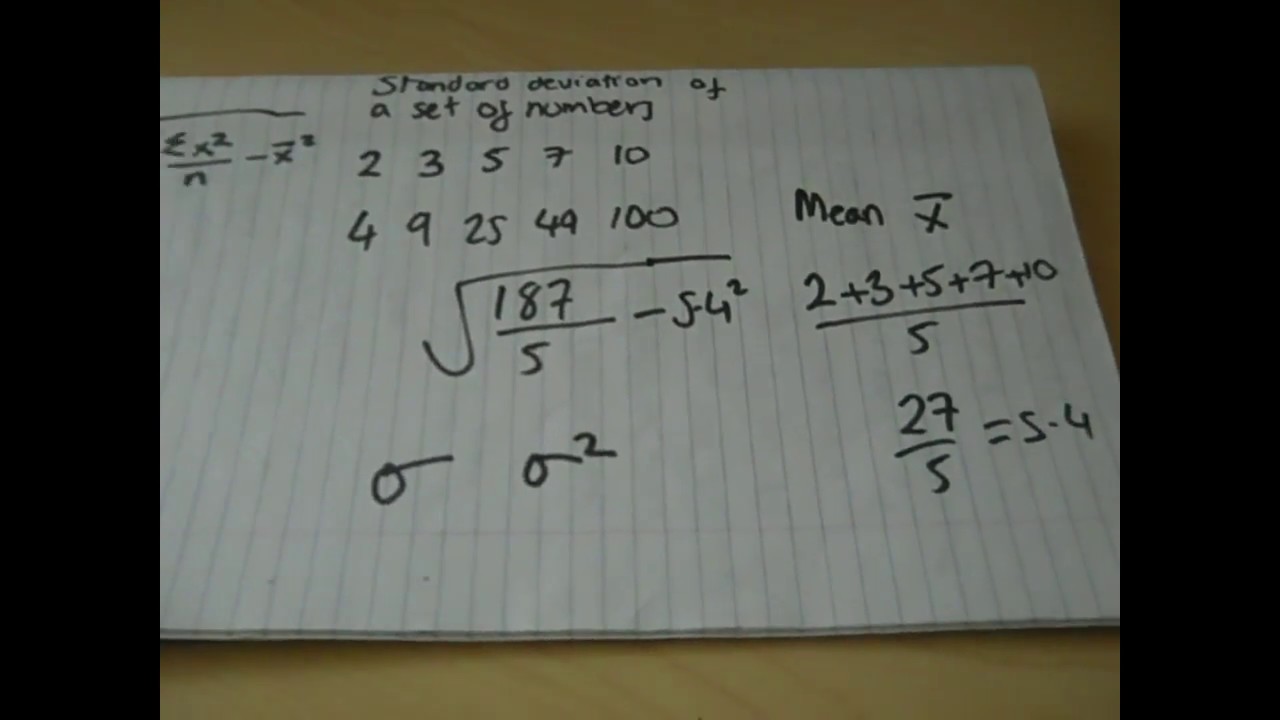 Standard deviation of
a set of numbers
Σx²/n - x̄²
2 3 5 7 10
4 9 25 49 100
√(187/5 - 5.4²)
σ σ²
Mean x̄
2+3+5+7+10
5
27/5 = 5.4